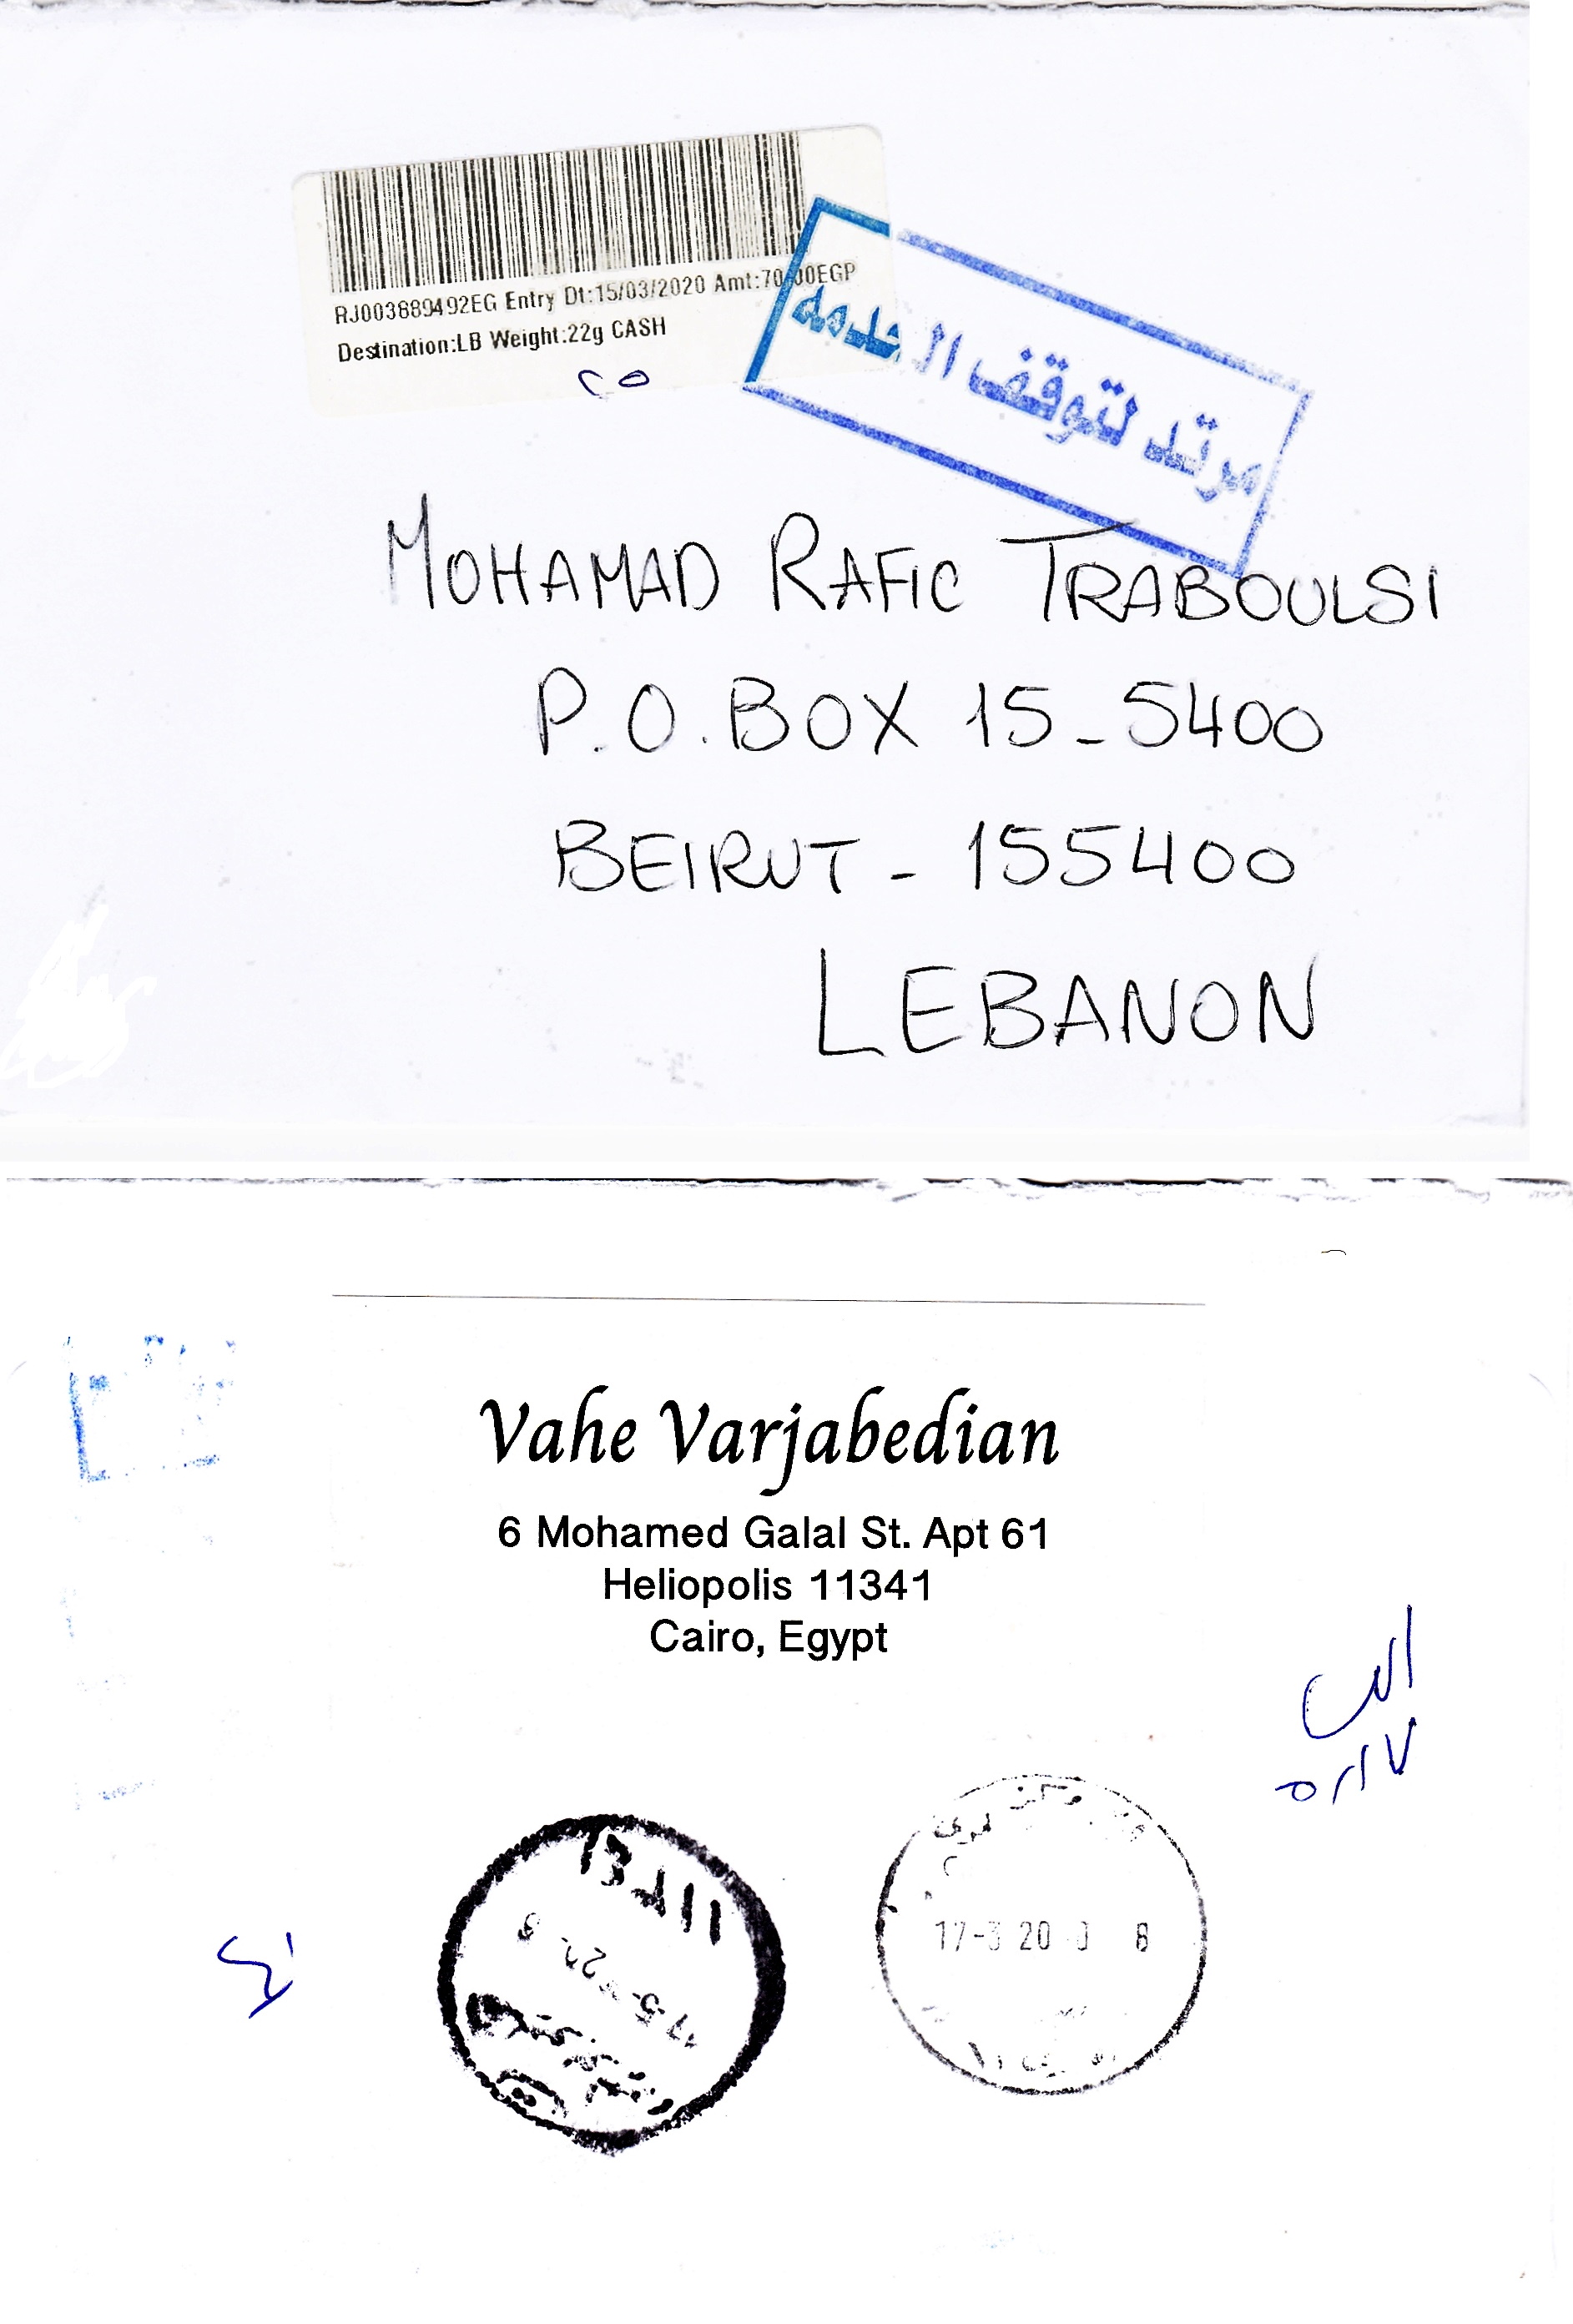 RJ003889492EG Entry Dt:15/03/2020 Amt:70.00EGP
Destination:LB Weight:22g CASH
٢٥
مرتد لتوقف الخدمه
MOHAMAD RAFIC TRABOULSI
P.O.BOX 15-5400
BEIRUT - 155400
LEBANON
Vahe Varjabedian
6 Mohamed Galal St. Apt 61
Heliopolis 11341
Cairo, Egypt
17-3 20 8